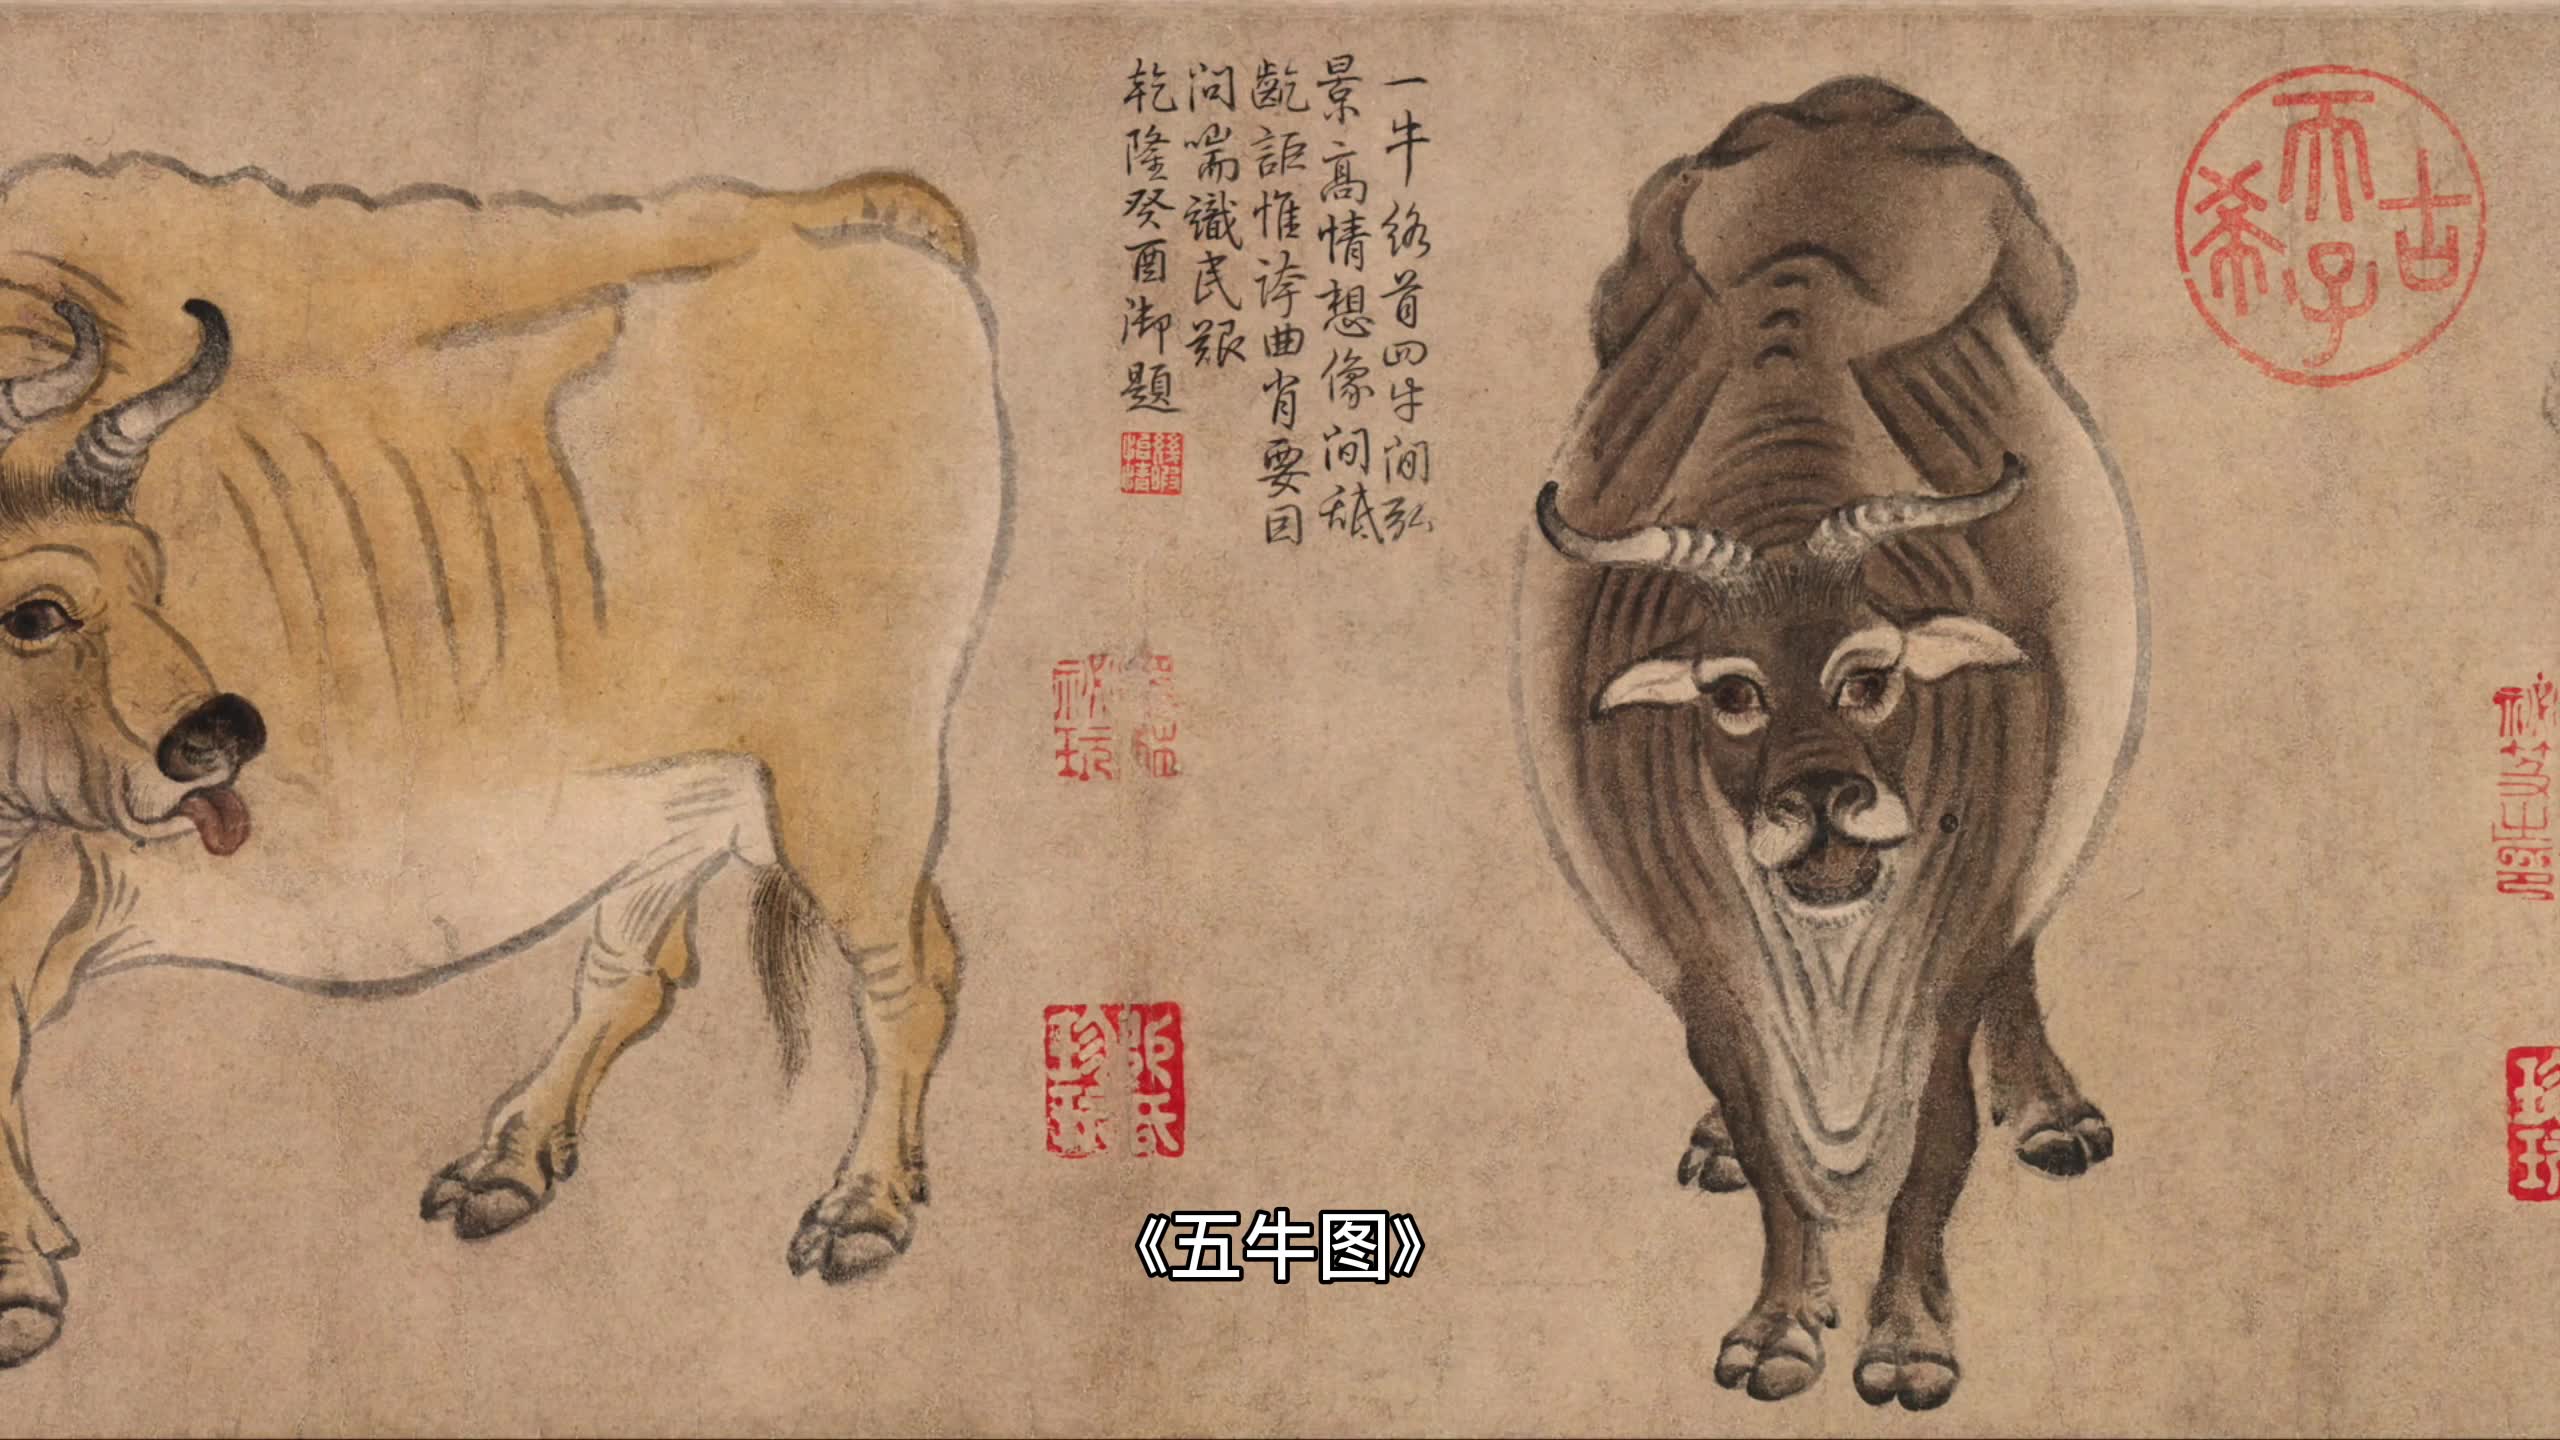 古希天子
一牛絡首四牛閒弘
景高情想像間舐
齕詎惟誇曲肖要因
問喘識民艱
乾隆癸酉御題
幾暇怡情
《五牛图》